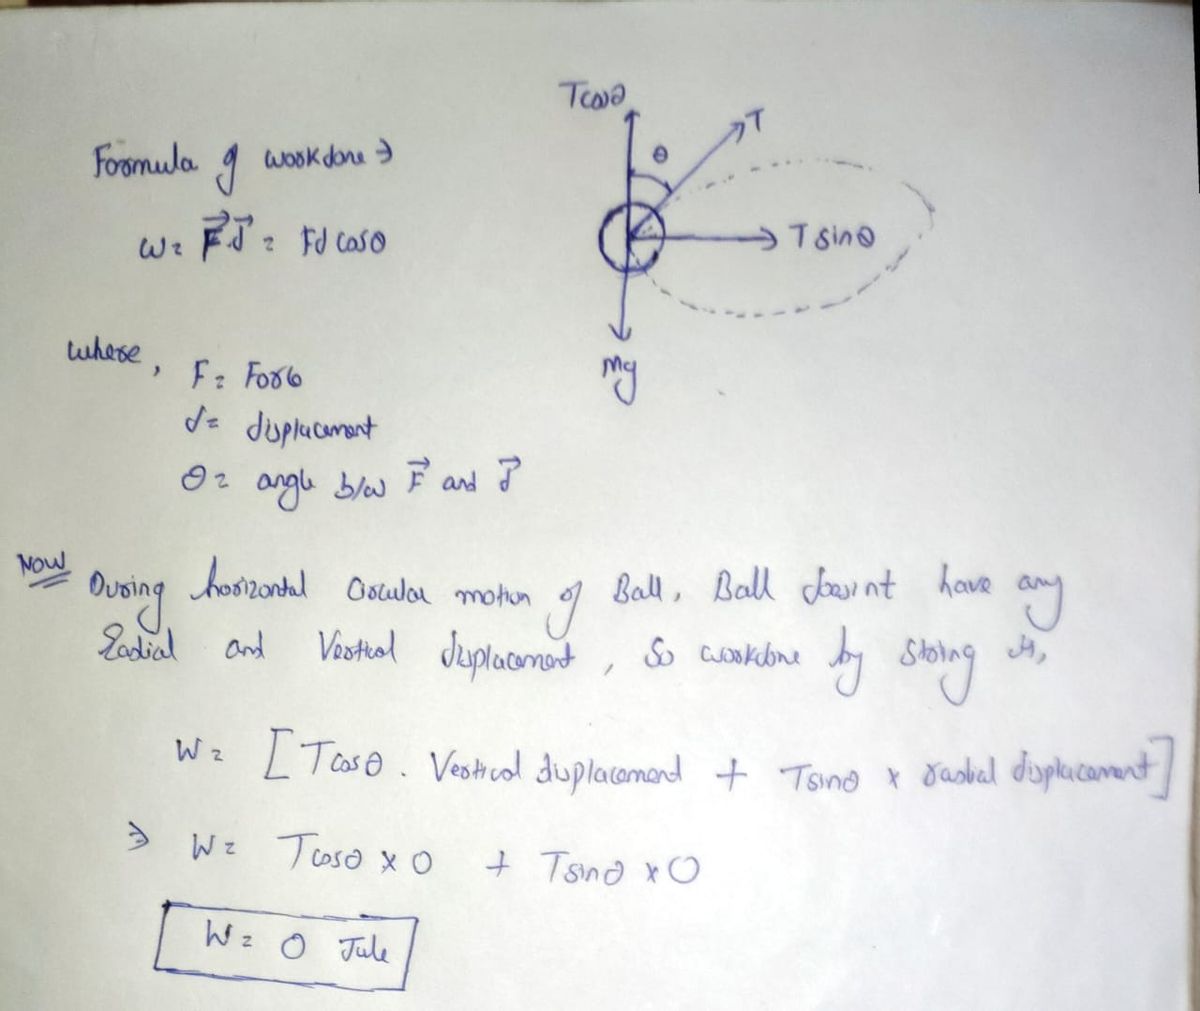 Tcosθ
T
θ
Formula of workdone ⇒
W = F⃗.d⃗ = Fd cosθ
T sinθ
Mg
where,
F = Force
d = displacement
θ = angle b/w F⃗ and d⃗
Now During horizontal Circular motion of Ball, Ball doesint have any
Radial and Vertical displacement, So workdone by string is,
W = [Tcosθ . Vertical displacement + Tsinθ x radial displacement]
⇒ W = Tcosθ x 0 + Tsinθ x 0
W = 0 Jule